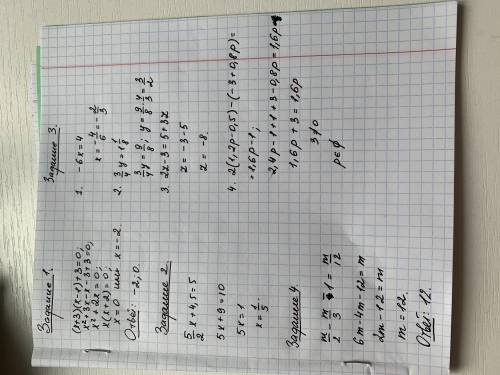 Задание 1.
(x+3)(x-1)+3=0;
x²+3x-x-3+3=0;
x²+2x=0;
x(x+2)=0;
x=0 или x=-2.
Ответ: -2, 0.
Задание 2.
5/2 x+4,5=5
5x+9=10
5x=1
x=1/5
Задание 4.
m/2 - m/3 - 1 = m/12
6m-4m-12=m
2m-12=m
m=12.
Ответ: 12.
Задание 3.
1. -6x=4
x=-4/6=-2/3
2. 3/4 y=1 1/8
3/4 y=9/8; y=9/8·4/3=3/2
3. 2z-3=5+3z
z=-3-5
z=-8.
4. 2(1,2p-0,5)-(-3+0,8p)=
=1,6p-1;
2,4p-1+1+3-0,8p=1,6p
1,6p+3=1,6p
3≠0
p∈∅